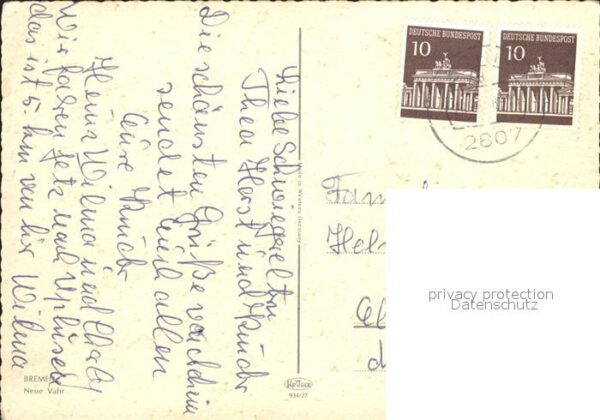 Liebe Schwiegeltern
Thea Horst und Kinder
Die schönsten Grüße von hir
sendet Euch allen
Eure Kinder
Heinz Wilma und
Wir fahren jetz nach
das ist 5. km von hir Wilma
BREMEN
Neue Vahr
Made in Western Germany
KRÜGER
934/27
10 DEUTSCHE BUNDESPOST
10 DEUTSCHE BUNDESPOST
2807
Fam
Hel
privacy protection
Datenschutz